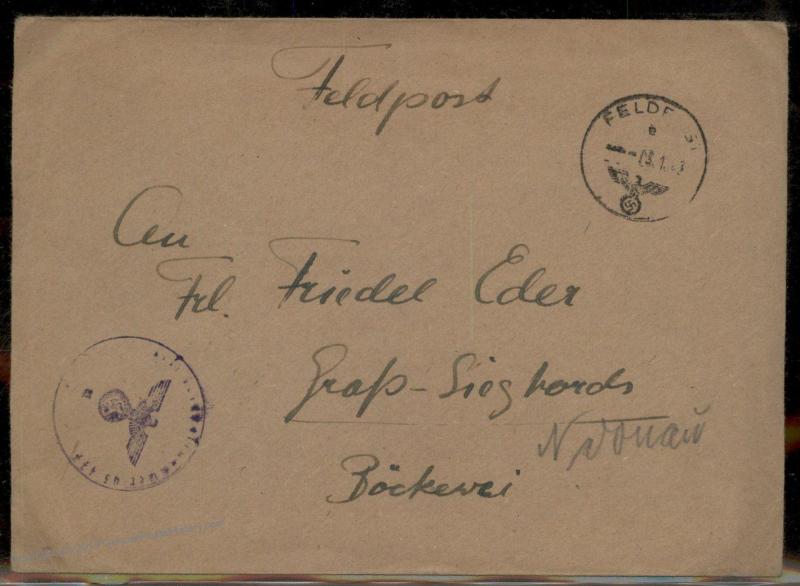 Feldpost
FELDP ST
e
An
Frl. Friedel Eder
Groß-Sieghards
N Donau
Böckerei